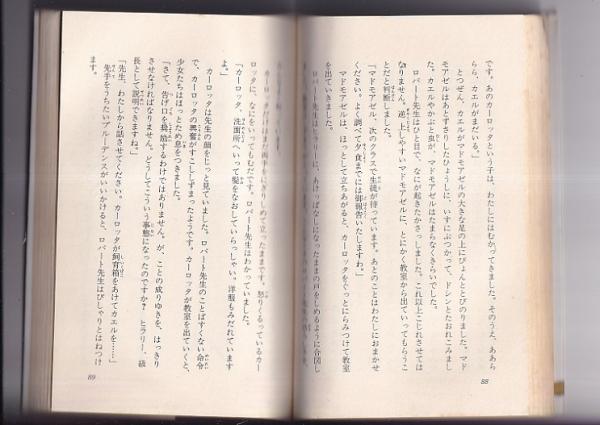 です。あのカーロッタという子は、わたしにはむかってきました。そのうえ、ああら
らら、カエルがまだいる。」
とつぜん、カエルがマドモアゼルの大きな足の上にぴょんととびのりました。マド
モアゼルはあとずさりしたひょうしに、いすにぶつかって、ドシンとたおれこみまし
た。カエルやかぶと虫が、マドモアゼルはたまらなくきらいでした。
ロバート先生はひと目で、なにが起きたかさっしました。これ以上こじれさせては
なりません。逆上しやすいマドモアゼルに、とにかく教室から出ていってもらうこ
とだと判断しました。
「マドモアゼル、次のクラスで生徒が待っています。あとのことはわたしにおまかせ
ください。よく調べて夕食までには御報告いたしますわ。」
マドモアゼルは、ほっとして立ちあがると、カーロッタをぐっとにらみつけて教室
を出ていきました。
ロバート先生はヒラリーに、あけっぱなしになったままの戸をしめるように合図し
88
カーロッタだけは両手をにぎりしめて立ったままです。怒りくるっているカー
ロッタに、なにをいってもむだです。ロバート先生はわかっていました。
「カーロッタ、洗面所へいって髪をなおしていらっしゃい。洋服もみだれています
よ。」
カーロッタは先生の顔をじっと見ていました。ロバート先生のことばすくない命令
で、カーロッタの興奮がすこししずまったようです。カーロッタが教室を出ていくと、
少女たちはほっとため息をつきました。
「さて、告げ口を奨励するわけではありませんが、ことの成りゆきを、はっきり
させなければなりません。どうしてこういう事態になったのですか？　ヒラリー、級
長として説明できますね。」
「先生、わたしから話させてください。カーロッタが飼育箱をあけてカエルを……」
先手をうちたいプルーデンスがいいかけると、ロバート先生はぴしゃりとはねつけ
ます。
89